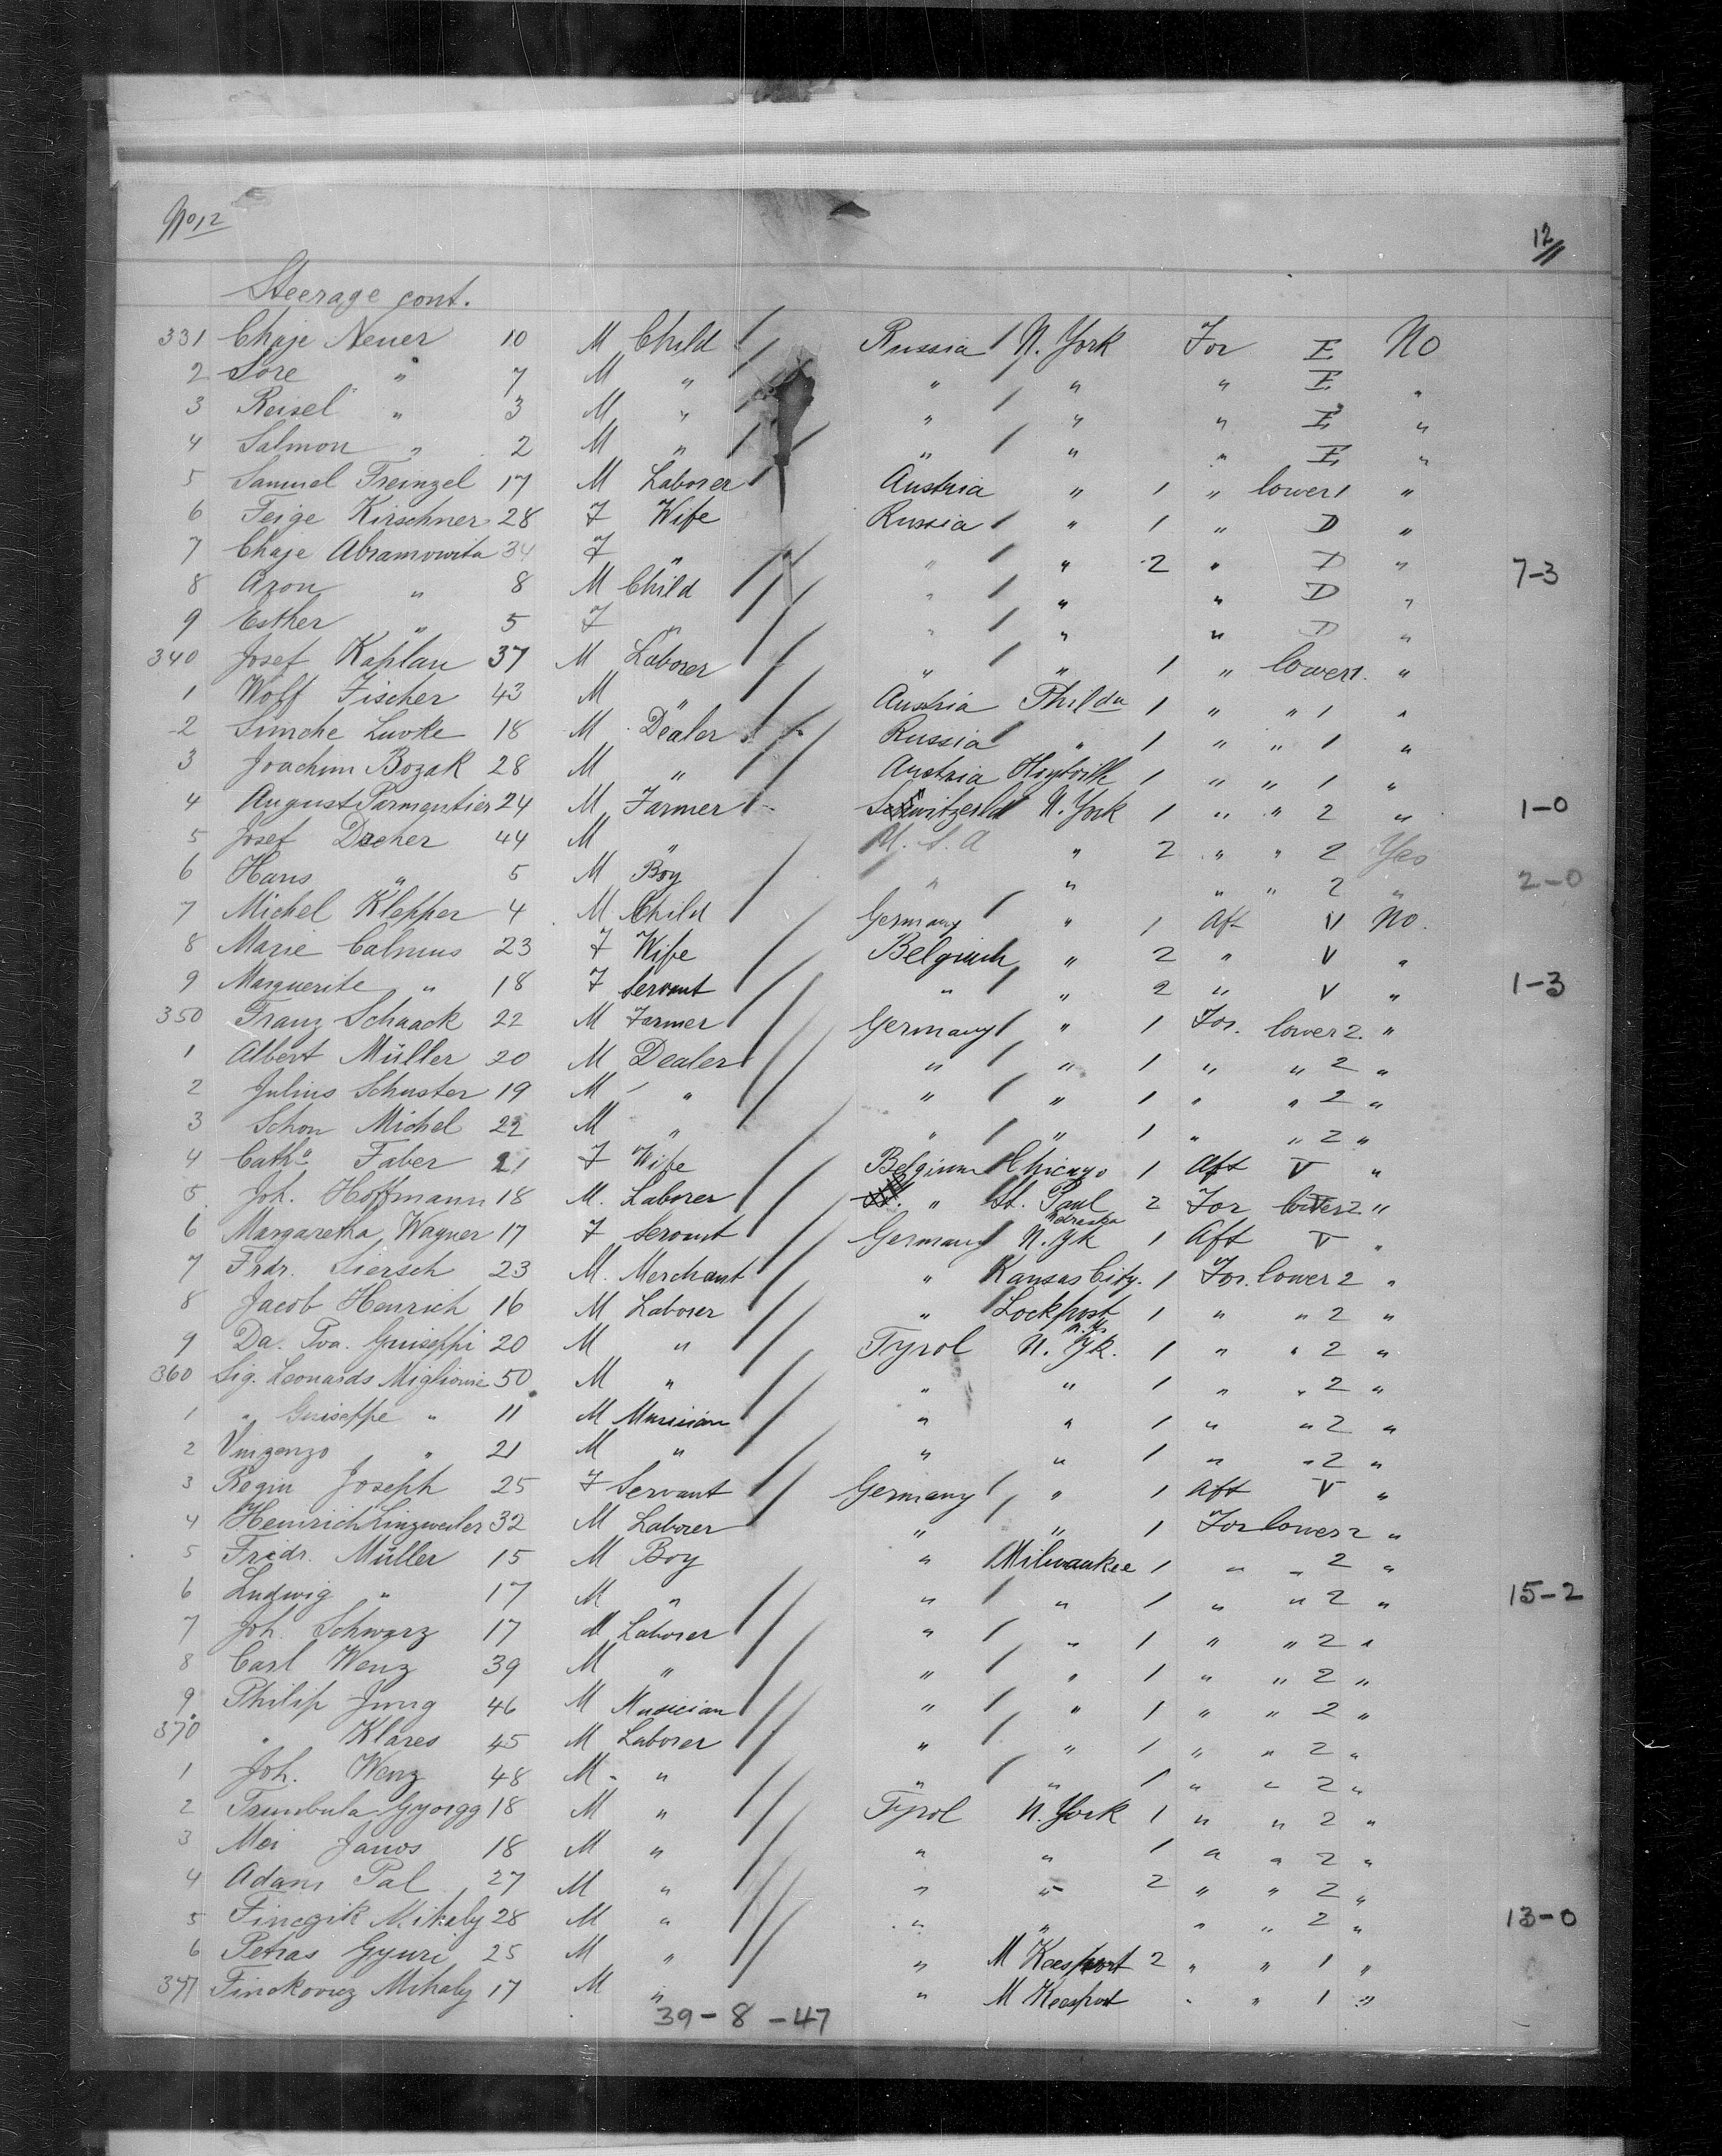 No 12
12
Steerage cont.
331 Chaje Neuer 10 M Child Russia N. York For E No
2 Sore " 7 M " " " " E "
3 Reisel " 3 M " " " " E "
4 Salmon " 2 M " " " " E "
5 Samuel Freinzel 17 M Laborer Austria " 1 " lower 1 "
6 Feige Kirschner 28 F Wife Russia " 1 " D "
7 Chaje Abramowitz 34 F " " " 2 " D " 7-3
8 Aron " 8 M Child " " " D "
9 Esther " 5 F " " " " D "
340 Josef Kaplan 37 M Laborer " " 1 " lower 1. "
1 Wolf Fischer 43 M " Austria Philda 1 " " 1 "
2 Simche Luvke 18 M Dealer Russia " 1 " " 1 "
3 Joachim Bozak 28 M " Austria 1 " " 1 "
4 August Parmentier 24 M Farmer Switzerld N. York 1 " " 2 " 1-0
5 Josef Dacher 44 M " U. S. A " 2 " " 2 Yes
6 Hans " 5 M Boy " " " " 2 " 2-0
7 Michel Klepper 4 M Child Germany " 1 Aft V No.
8 Marie Calmus 23 F Wife Belgium " 2 " V "
9 Marguerite " 18 F Servant " " 2 " V " 1-3
350 Franz Schaack 22 M Farmer Germany " 1 For. lower 2. "
1 Albert Müller 20 M Dealer " " 1 " " 2 "
2 Julius Schuster 19 M " " " 1 " " 2 "
3 Schon Michel 22 M " " " 1 " " 2 "
4 Catha Faber 21 F Wife Belgium Chicago 1 Aft V "
5. Joh. Hoffmann 18 M. Laborer " St. Paul 2 For lower 2 "
Nebraska
6 Margaretha Wagner 17 F Servant Germany N. Yk 1 Aft V "
7 Frdr. Siersch 23 M. Merchant " Kansas City. 1 For. lower 2 "
8 Jacob Henrich 16 M Laborer " Lockport 1 " " 2 "
N. Y.
9 Da. Pra. Guiseppi 20 M " Tyrol N. Yk. 1 " " 2 "
360 Sig. Leonards Miglionie 50 M " " " 1 " " 2 "
1 " Guiseppe " 11 M Musician " " 1 " " 2 "
2 Vinzenzo " 21 M " " " 1 " " 2 "
3 Regin Joseph 25 F Servant Germany " 1 Aft V "
4 Heinrich Linzweiler 32 M Laborer " " 1 For lower 2 "
5 Fridr. Müller 15 M Boy " Milwaukee 1 " " 2 "
6 Ludwig " 17 M " " " 1 " " 2 " 15-2
7 Joh. Schwarz 17 M Laborer " " 1 " " 2 "
8 Carl Wenz 39 M " " " 1 " " 2 "
9 Philip Jung 46 M Musician " " 1 " " 2 "
370 " Klares 45 M Laborer " " 1 " " 2 "
1 Joh. Wenz 48 M - " " " 1 " " 2 "
2 Trumbula Gyorgg 18 M " Tyrol N. York 1 " " 2 "
3 Mei Janos 18 M " " " 1 " " 2 "
4 Adam Pal 27 M " " " 2 " " 2 "
5 Finczik Mihaly 28 M " " " " " 2 " 13-0
6 Petras Gyuri 25 M " " M Keesport 2 " " 1 "
377 Finckovicz Mihaly 17 M " " M Keesport " " 1 "
39-8-47